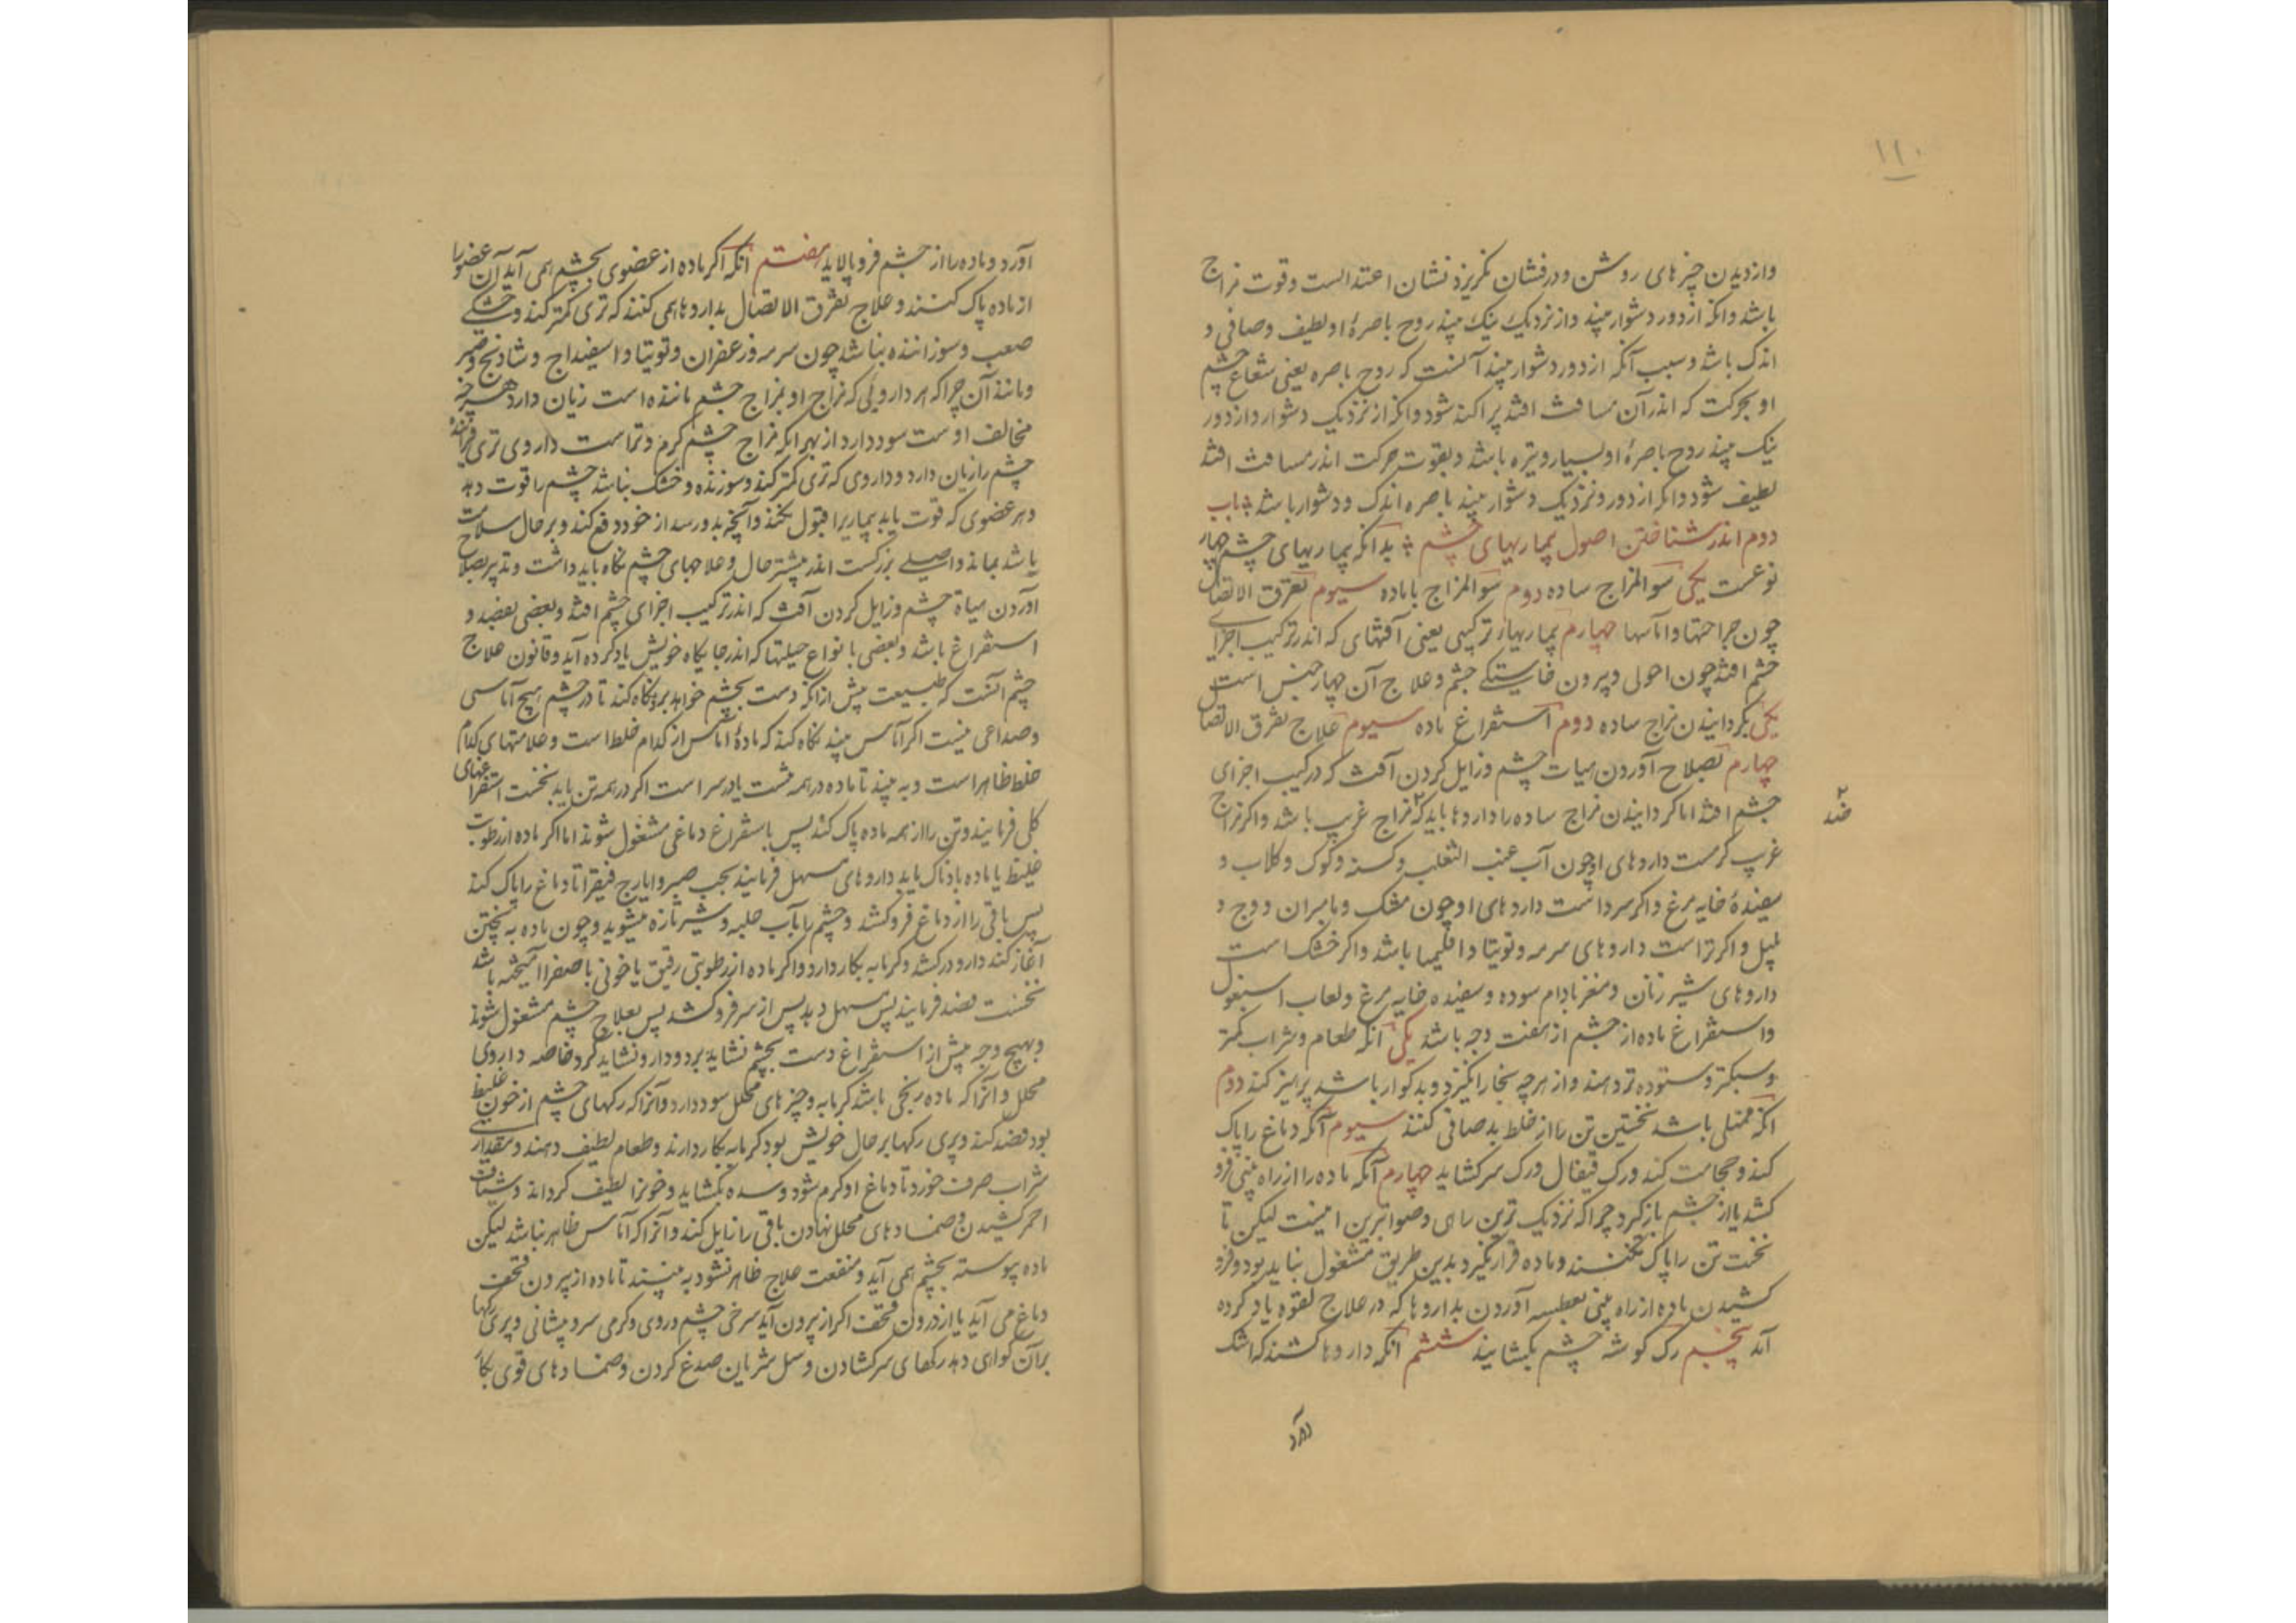 ۱۱۰
واز دیدن چیزهای روشن و درفشان نکریزد نشان اعتدالست و قوت مزاج
باشد و انکه از دور دشوار بیند و از نزدیک نیک بیند روح باصرهٔ او لطیف و صافی و
اندک باشد و سبب آنکه از دور دشوار بیند آنست که روح باصره یعنی شعاع چشم
او بحرکت که اندر آن مسافت افتد پراکنده شود و انکه از نزدیک دشوار و از دور
نیک بیند روح باصرهٔ او بسیار و تیره باشد و بقوت حرکت اندر مسافت افتد
لطیف شود و انکه از دور و نزدیک دشوار بیند باصره اندک و دشوار باشد باب
دوم اندر شناختن اصول بیماریهای چشم بدانکه بیماریهای چشم چهار
نوعست یکی سوالمزاج ساده دوم سوالمزاج باماده سیوم تفرق الاتصال
چون جراحتها و اماسها چهارم بیماریهاء ترکیبی یعنی آفتهای که اندر ترکیب اجزای
چشم افتد چون احولی و بیرون خاستکی چشم و علاج آن چهار جنس است
یکی بکردانیدن مزاج ساده دوم استفراغ ماده سیوم علاج تفرق الاتصال
چهارم بصلاح آوردن هیات چشم و زایل کردن آفت که در ترکیب اجزای
چشم افتد اما کردانیدن مزاج ساده را داروها باید که مزاج غریب باشد و اکر مزاج
ضد
غریب کرمست داروهای او چون آب عنب الثعلب و کسنه و کوک و کلاب و
سفیدهٔ خایه مرغ و اکر سرد است داروهای او چون مشک و مامیران و وج و
پلپل و اکر تر است داروهای سرمه و توتیا و اقلیمیا باشد و اکر خشک است
داروهای شیر زنان و مغز بادام سوده و سفیده خایه مرغ و لعاب اسبغول
و استفراغ ماده از چشم از هفت وجه باشد یکی آنکه طعام و شراب کمتر
و سبکتر و ستوده تر دهند و از هرچه بخار انکیزد و بد کوار باشد پرهیز کند دوم
انکه ممتلی باشد نخستین تن را از خلط بد صافی کنند سیوم آنکه دماغ را پاک
کند و حجامت کند و رک قیفال و رک سر کشاید چهارم آنکه ماده را از راه بینی فرو
کشد یا از چشم باز کرد چرا که نزدیک ترین راهی و صوابترین اینست لیکن تا
نخست تن را پاک نکنند و ماده قرار نکیرد بدین طریق مشغول نباید بود و فرو
کشیدن ماده از راه بینی بعطسه آوردن بداروها که در علاج لقوه یاد کرده
آید پنجم رک کوشه چشم بکشایند ششم انکه داروها کشند که اشک
آورد و ماده را از چشم فرو پالاید هفتم انکه اکر ماده از عضوی بچشم همی آید آن عضو را
از ماده پاک کنند و علاج تفرق الاتصال بداروها همی کنند که تری کمتر کند و خشکی
صعب و سوزاننده نباشد چون سرمه و زعفران و توتیا و اسفیداج و شادنج و صبر
و مانند آن چرا که هر دارویی که مزاج او بمزاج چشم ماننده است زیان دارد هرچه
مخالف اوست سود دارد از بهر انکه مزاج چشم کرم و تر است داروی تری فزاینده
چشم را زیان دارد و داروی که تری کمتر کند و سوزنده و خشک نباشد چشم را قوت دهد
و هر عضوی که قوت یابد بیماریرا قبول نکند و آنچه بدو رسد از خود دفع کند و بر حال سلامت
باشد بماند و اصلی بزرکست اندر بیشتر حال و علاجهای چشم نکاه باید داشت و تدبیر بصلاح
آوردن هیاة چشم و زایل کردن آفت که اندر ترکیب اجزای چشم افتد و بعضی بفصد و
استفراغ باشد و بعضی بانواع حیلتها که اندر جایکاه خویش یاد کرده آید و قانون علاج
چشم آنست که طبیعت پیش از انکه دست بچشم خواهد برد نکاه کند تا در چشم هیچ آماسی
و صداعی نیست اکر آماس بیند نکاه کند که مادهٔ آماس از کدام خلط است و علامتهای کدام
خلط ظاهر است و به بیند تا ماده در همه تنست یا در سر است اکر در همه تن باید نخست استفراغهای
کلی فرمایند و تن را از همه ماده پاک کند پس باستفراغ دماغی مشغول شوند اما اکر ماده از رطوبت
غلیظ یا ماده بادناک باید داروهای مسهل فرمایند بحب صبر و ایارج فیقرا تا دماغ را پاک کند
پس باقی را از دماغ فرو کشد و چشم را بآب حلبه و شیر تازه میشوید و چون ماده به پختن
آغاز کند دارو درکشد و کرمابه بکار دارد و اکر ماده از رطوبتی رقیق یا خونی با صفرا آمیخته باشد
نخست فصد فرمایند پس مسهل دهد پس از سر فرو کشد پس بعلاج چشم مشغول شوند
و بهیچ وجه پیش از استفراغ دست بچشم نشاید برد و دارو نشاید کرد خاصه داروی
محلل و آنرا که ماده ریحی باشد کرمابه و چیزهای محلل سود دارد و آنرا که رکهای چشم از خون غلیظ
بود فصد کند و پری رکها بر حال خویش بود کرمابه بکار دارند و طعام لطیف دهند و مقداری
شراب صرف خورد تا دماغ او کرم شود و سده بکشاید و خونرا لطیف کرداند و شیاف
احمر کشیدن و ضمادهای محلل نهادن باقی را زایل کند و آنرا که آماس ظاهر نباشد لیکن
ماده پیوسته بچشم همی آید و منفعت علاج ظاهر نشود به بینند تا ماده از بیرون قحف
دماغ می آید یا از درون قحف اکر از بیرون آید سرخی چشم و روی و کرمی سر و پیشانی و پری رکها
بر آن کوای دهد رکهای سر کشادن و سل شریان صدغ کردن و ضمادهای قوی بکار